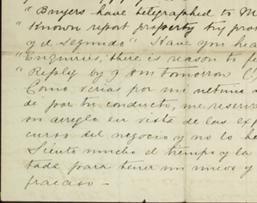 "Buyers have telegraphed to M
"Known report property try pro
y d Segundo" Have you hea
"Enquiries, there is reason to fe
"Reply by 9 a m tomorrow
Como verias por mi
de por tu conducto, me reserv
un arreglo en vista de las exp
curso del negocio y no lo h
Siento mucho el tiempo y la
tada para tener un nuevo y
fracaso —